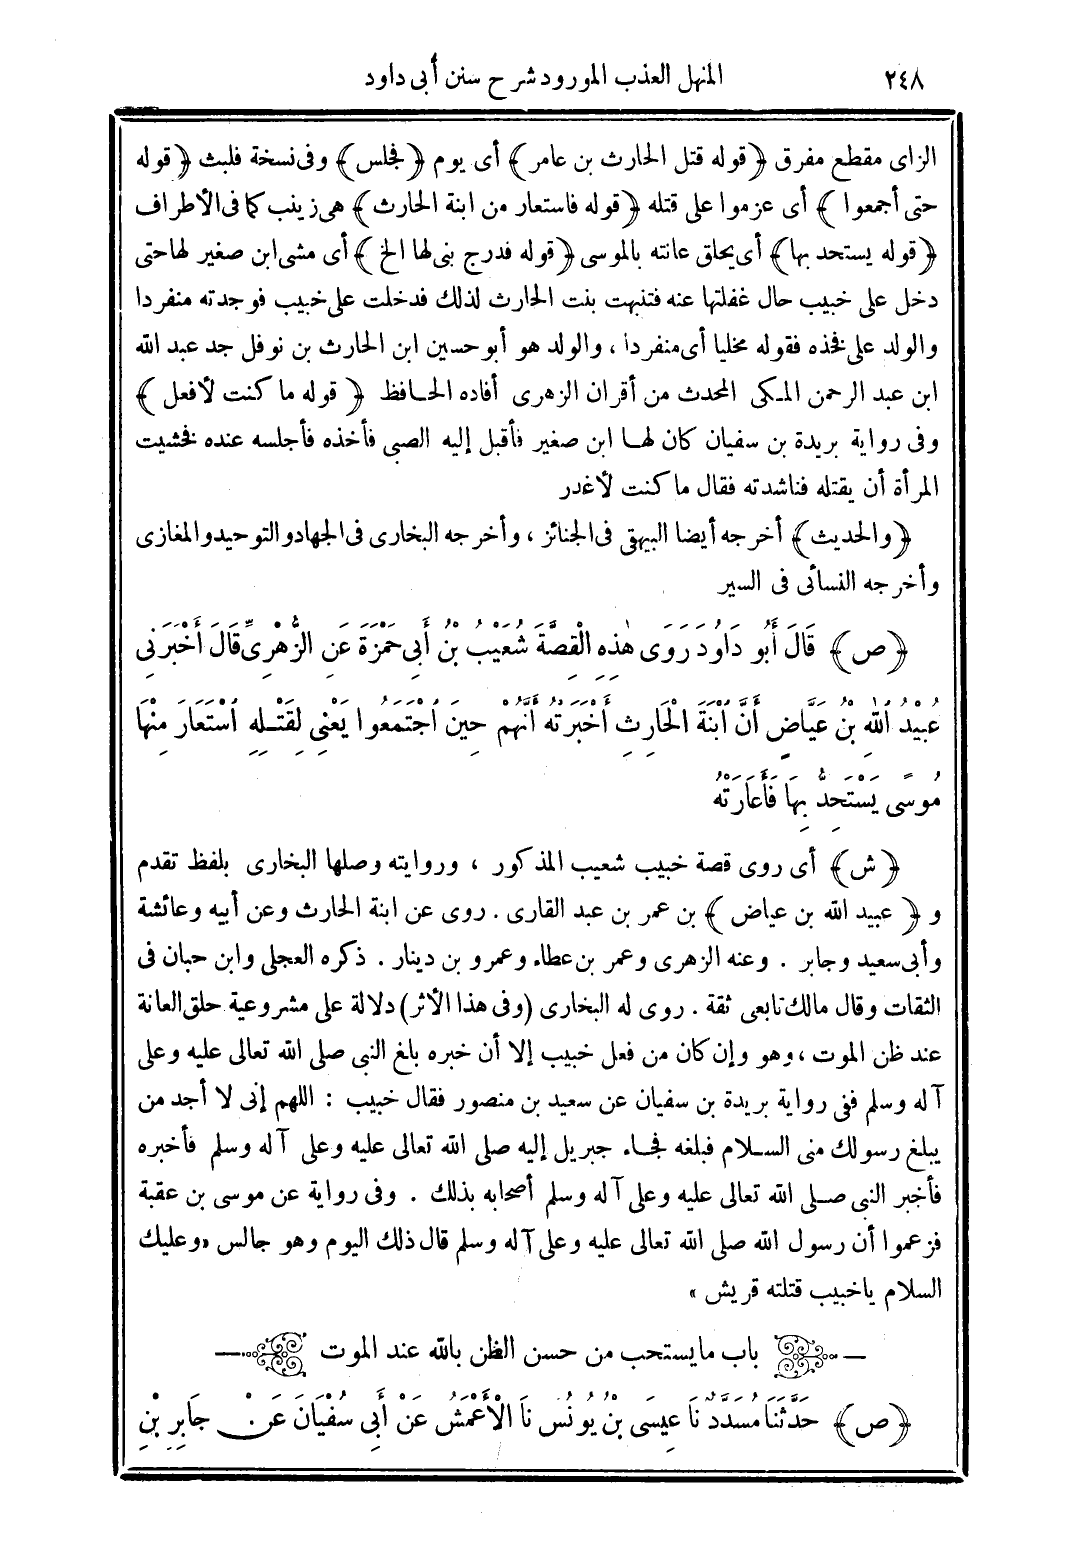 ٢٤٨ المنهل العذب المورود شرح سنن أبى داود
الزاى مقطع مفرق ﴿قوله قتل الحارث بن عامر﴾ أى يوم ﴿فجلس﴾ وفى نسخة فلبث ﴿قوله
حتى أجمعوا﴾ أى عزموا على قتله ﴿قوله فاستعار من ابنة الحارث﴾ هى زينب كما فى الأطراف
﴿قوله يستحد بها﴾ أى يحلق عانته بالموسى ﴿قوله فدرج بنى لها الخ﴾ أى مشى ابن صغير لها حتى
دخل على خبيب حال غفلتها عنه فتنبهت بنت الحارث لذلك فدخلت على خبيب فوجدته منفردا
والولد على فخذه فقوله مخليا أى منفردا، والولد هو أبو حسين ابن الحارث بن نوفل جد عبد الله
ابن عبد الرحمن المكى المحدث من أقران الزهرى أفاده الحافظ ﴿قوله ما كنت لأفعل﴾
وفى رواية بريدة بن سفيان كان لها ابن صغير فأقبل إليه الصبى فأخذه فأجلسه عنده فخشيت
المرأة أن يقتله فناشدته فقال ما كنت لأغدر
﴿والحديث﴾ أخرجه أيضا البيهقى فى الجنائز، وأخرجه البخارى فى الجهاد والتوحيد والمغازى
وأخرجه النسائى فى السير
﴿ص﴾ قَالَ أَبُو دَاوُدَ رَوَى هٰذِهِ الْقِصَّةَ شُعَيْبُ بْنُ أَبِى حَمْزَةَ عَنِ الزُّهْرِىِّ قَالَ أَخْبَرَنِى
عُبَيْدُ اللهِ بْنُ عَيَّاضٍ أَنَّ ابْنَةَ الْحَارِثِ أَخْبَرَتْهُ أَنَّهُمْ حِينَ اجْتَمَعُوا يَعْنِى لِقَتْلِهِ اسْتَعَارَ مِنْهَا
مُوسًى يَسْتَحِدُّ بِهَا فَأَعَارَتْهُ
﴿ش﴾ أى روى قصة خبيب شعيب المذكور، وروايته وصلها البخارى بلفظ تقدم
و﴿عبيد الله بن عياض﴾ بن عمر بن عبد القارى. روى عن ابنة الحارث وعن أبيه وعائشة
وأبى سعيد وجابر. وعنه الزهرى وعمر بن عطاء وعمرو بن دينار. ذكره العجلى وابن حبان فى
الثقات وقال مالك تابعى ثقة. روى له البخارى (وفى هذا الأثر) دلالة على مشروعية حلق العانة
عند ظن الموت، وهو وإن كان من فعل خبيب إلا أن خبره بلغ النبى صلى الله تعالى عليه وعلى
آله وسلم ففى رواية بريدة بن سفيان عن سعيد بن منصور فقال خبيب: اللهم إنى لا أجد من
يبلغ رسولك منى السلام فبلغه فجاء جبريل إليه صلى الله تعالى عليه وعلى آله وسلم فأخبره
فأخبر النبى صلى الله تعالى عليه وعلى آله وسلم أصحابه بذلك. وفى رواية عن موسى بن عقبة
فزعموا أن رسول الله صلى الله تعالى عليه وعلى آله وسلم قال ذلك اليوم وهو جالس «وعليك
السلام ياخبيب قتلته قريش»
باب ما يستحب من حسن الظن بالله عند الموت
﴿ص﴾ حَدَّثَنَا مُسَدَّدٌ نَا عِيسَى بْنُ يُونُسَ نَا الْأَعْمَشُ عَنْ أَبِى سُفْيَانَ عَنْ جَابِرِ بْنِ